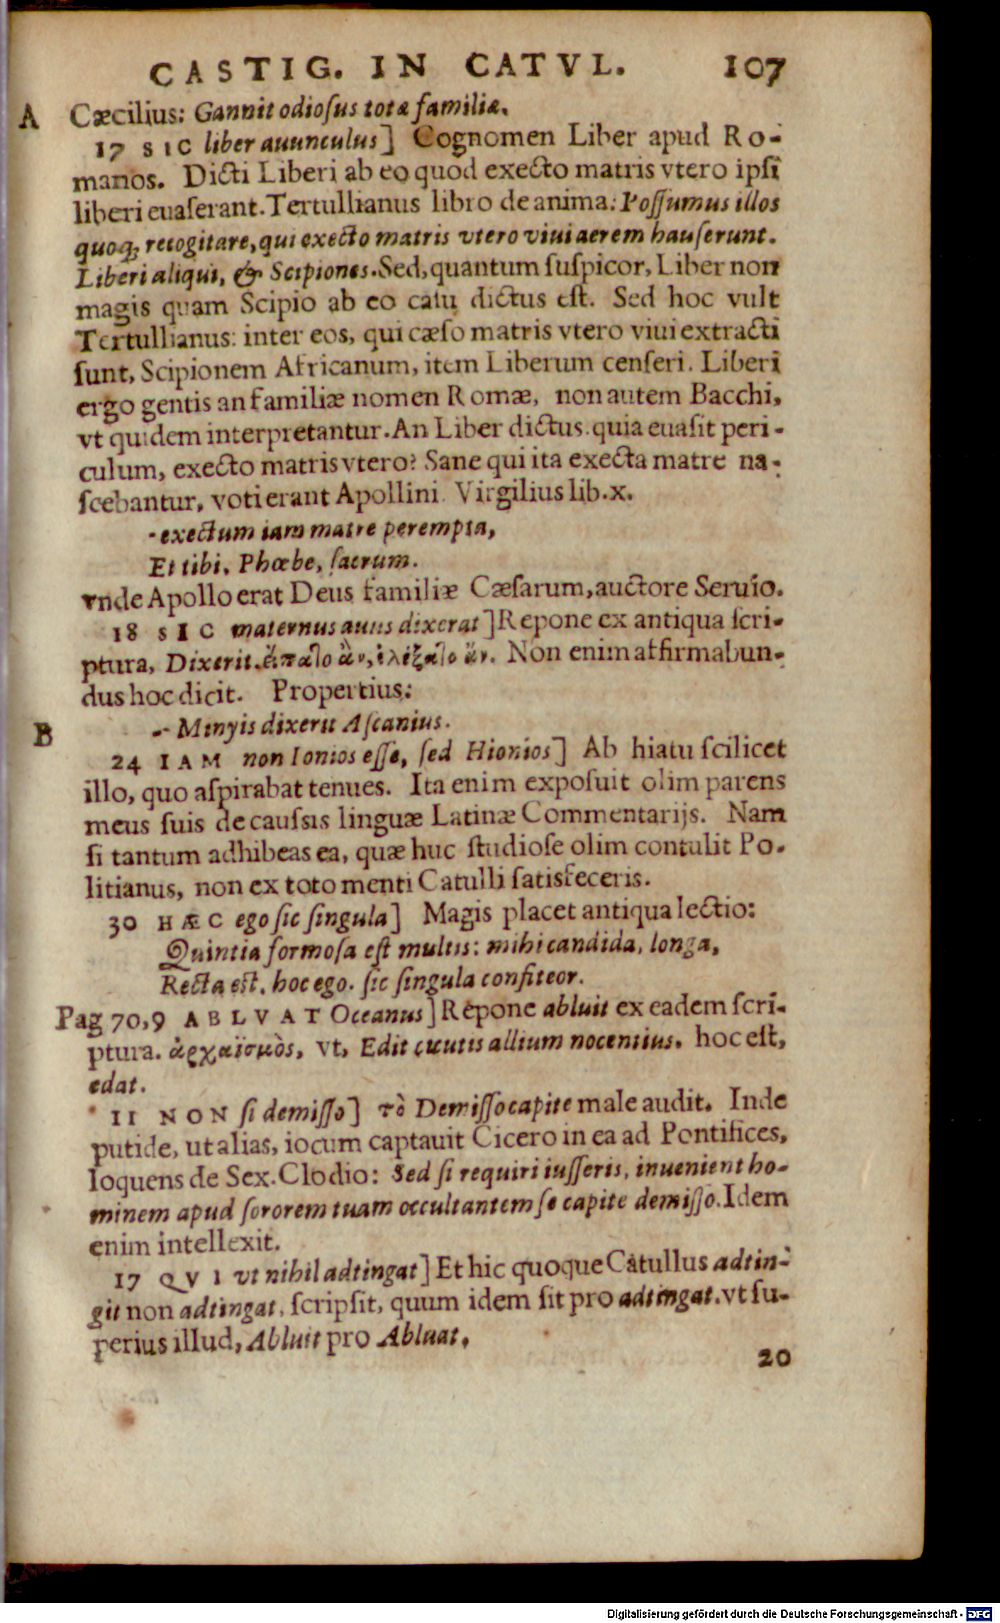 CASTIG. IN CATVL. 107
A Cæcilius: Gannit odiosus totæ familiæ.
17 SIC liber auunculus] Cognomen Liber apud Ro-
manos. Dicti Liberi ab eo quod execto matris vtero ipsi
liberi euaserant. Tertullianus libro de anima: Possumus illos
quoq; recogitare, qui execto matris vtero viui aerem hauserunt.
Liberi aliqui, & Scipiones. Sed, quantum suspicor, Liber non
magis quam Scipio ab eo casu dictus est. Sed hoc vult
Tertullianus: inter eos, qui cæso matris vtero viui extracti
sunt, Scipionem Africanum, item Liberum censeri. Liberi
ergo gentis an familiæ nomen Romæ, non autem Bacchi,
vt quidem interpretantur. An Liber dictus. quia euasit peri-
culum, execto matris vtero? Sane qui ita execta matre na-
scebantur, voti erant Apollini. Virgilius lib. x.
- exectum iam matre perempta,
Et tibi, Phœbe, sacrum.
vnde Apollo erat Deus familiæ Cæsarum, auctore Seruio.
18 SIC maternus auus dixerat] Repone ex antiqua scri-
ptura, Dixerit. Non enim affirmabun-
dus hoc dicit. Propertius:
B -- Minyis dixerit Ascanius.
24 IAM non Ionios esse, sed Hionios] Ab hiatu scilicet
illo, quo aspirabat tenues. Ita enim exposuit olim parens
meus suis de caussis linguæ Latinæ Commentarijs. Nam
si tantum adhibeas ea, quæ huc studiose olim contulit Po-
litianus, non ex toto menti Catulli satisfeceris.
30 HÆC ego sic singula] Magis placet antiqua lectio:
Quintia formosa est multis: mihi candida, longa,
Recta est. hoc ego. sic singula confiteor.
Pag 70,9 ABLVAT Oceanus] Repone abluit ex eadem scri-
ptura. ἀρχαϊσμὸς, vt, Edit cicutis allium nocentius. hoc est,
edat.
11 NON si demisso] τὸ Demisso capite male audit. Inde
putide, ut alias, iocum captauit Cicero in ea ad Pontifices,
loquens de Sex. Clodio: Sed si requiri iusseris, inuenient ho-
minem apud sororem tuam occultantem se capite demisso. Idem
enim intellexit.
17 QVI vt nihil adtingat] Et hic quoque Catullus adtin-
git non adtingat, scripsit, quum idem sit pro adtingat. vt su-
perius illud, Abluit pro Abluat.
20
Digitalisierung gefördert durch die Deutsche Forschungsgemeinschaft - DFG